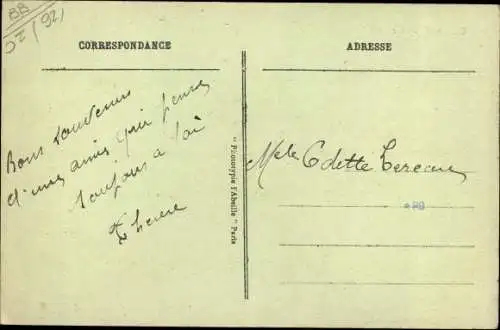 BB
DI (92)
CORRESPONDANCE
ADRESSE
Bons souvenirs
d'une amie qui pense
toujours a toi
"Phototypie l'Abeille" Paris
Melle Odette
PB